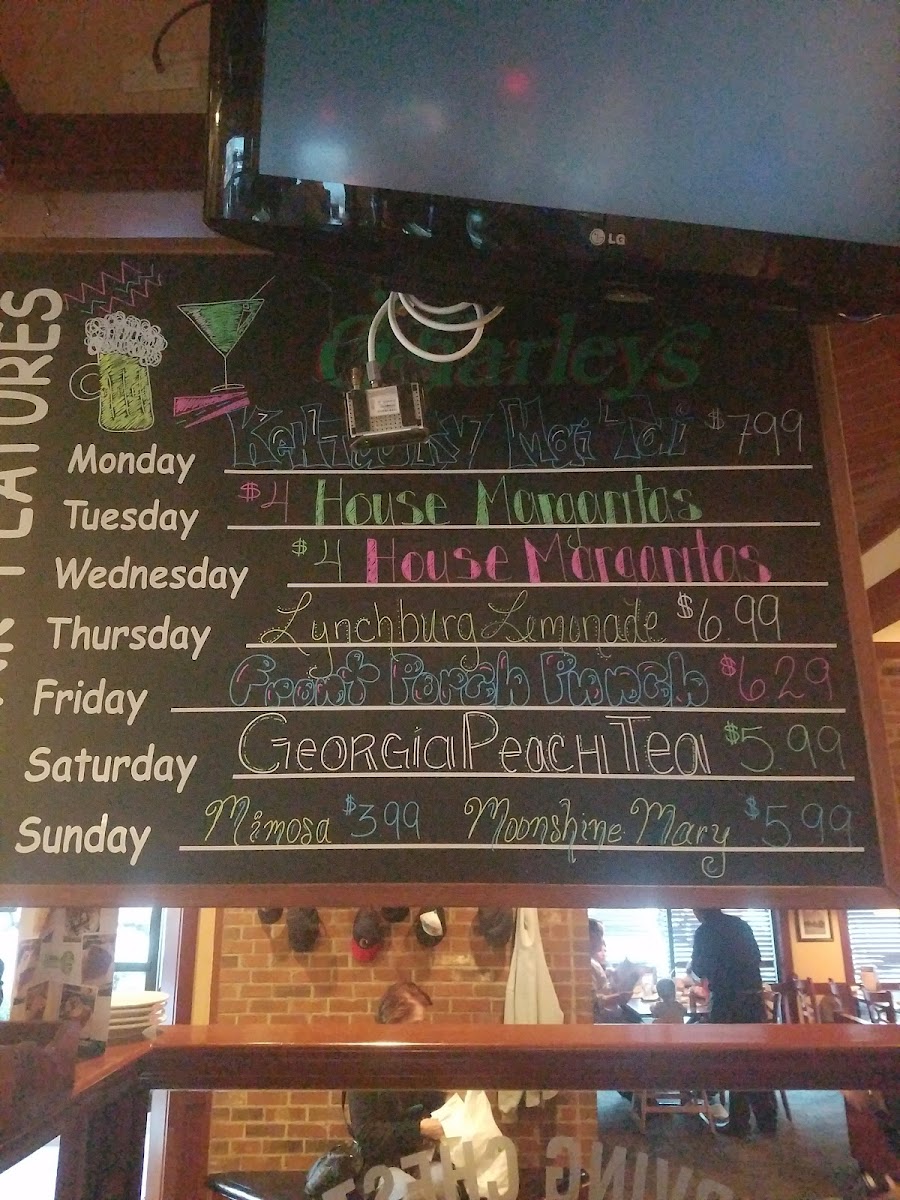 LG
FEATURES
O'Charleys
Monday Kentucky Mai Tai $7.99
Tuesday $4 House Margaritas
Wednesday $4 House Margaritas
Thursday Lynchburg Lemonade $6.99
Friday Front Porch Punch $6.29
Saturday Georgia Peach Tea $5.99
Sunday Mimosa $3.99 Moonshine Mary $5.99